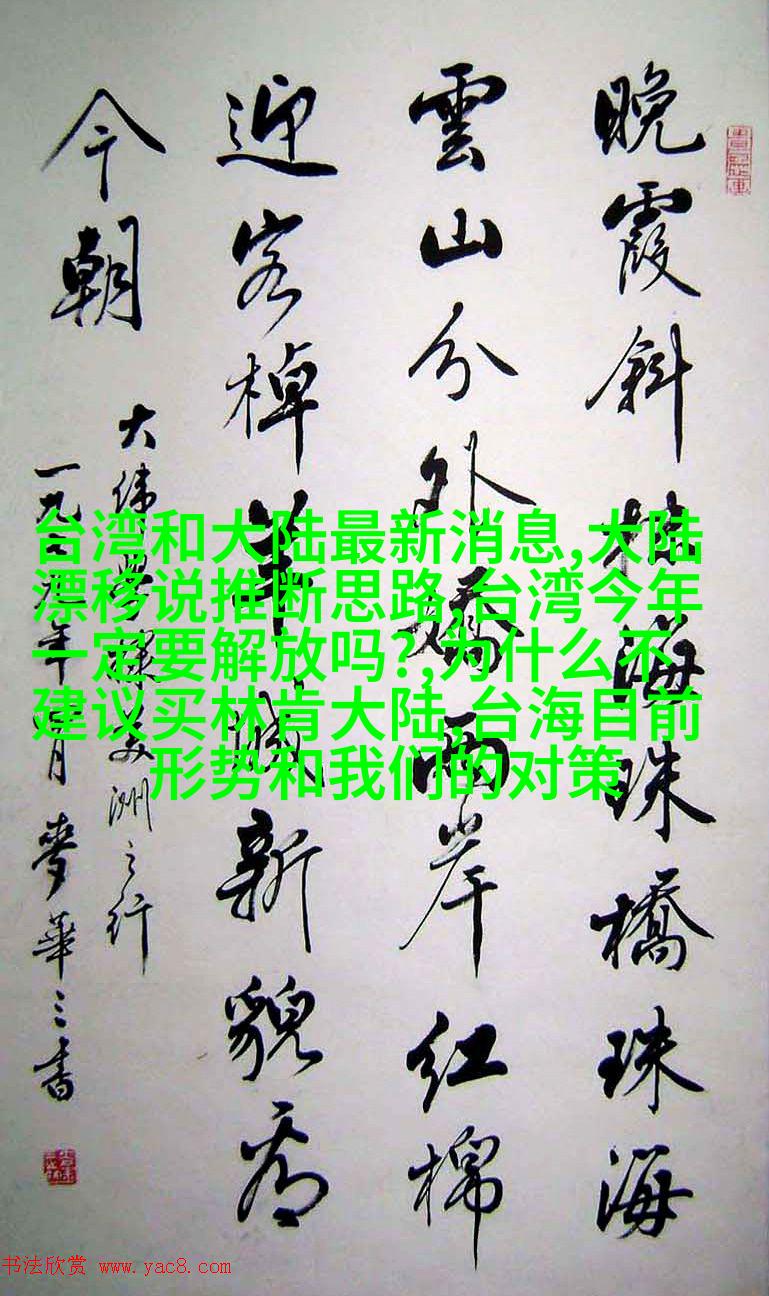 晚霞斜抹海珠橋珠海
雲山分外嬌兩岸红棉
迎客棹羊城新貌看
今朝
大緯美洲之行
一九年月麥華三書
台湾和大陆最新消息,大陆
漂移说推断思路,台湾今年
一定要解放吗?,为什么不
建议买林肯大陆,台海目前
形势和我们的对策
书法欣赏 www.yac8.com